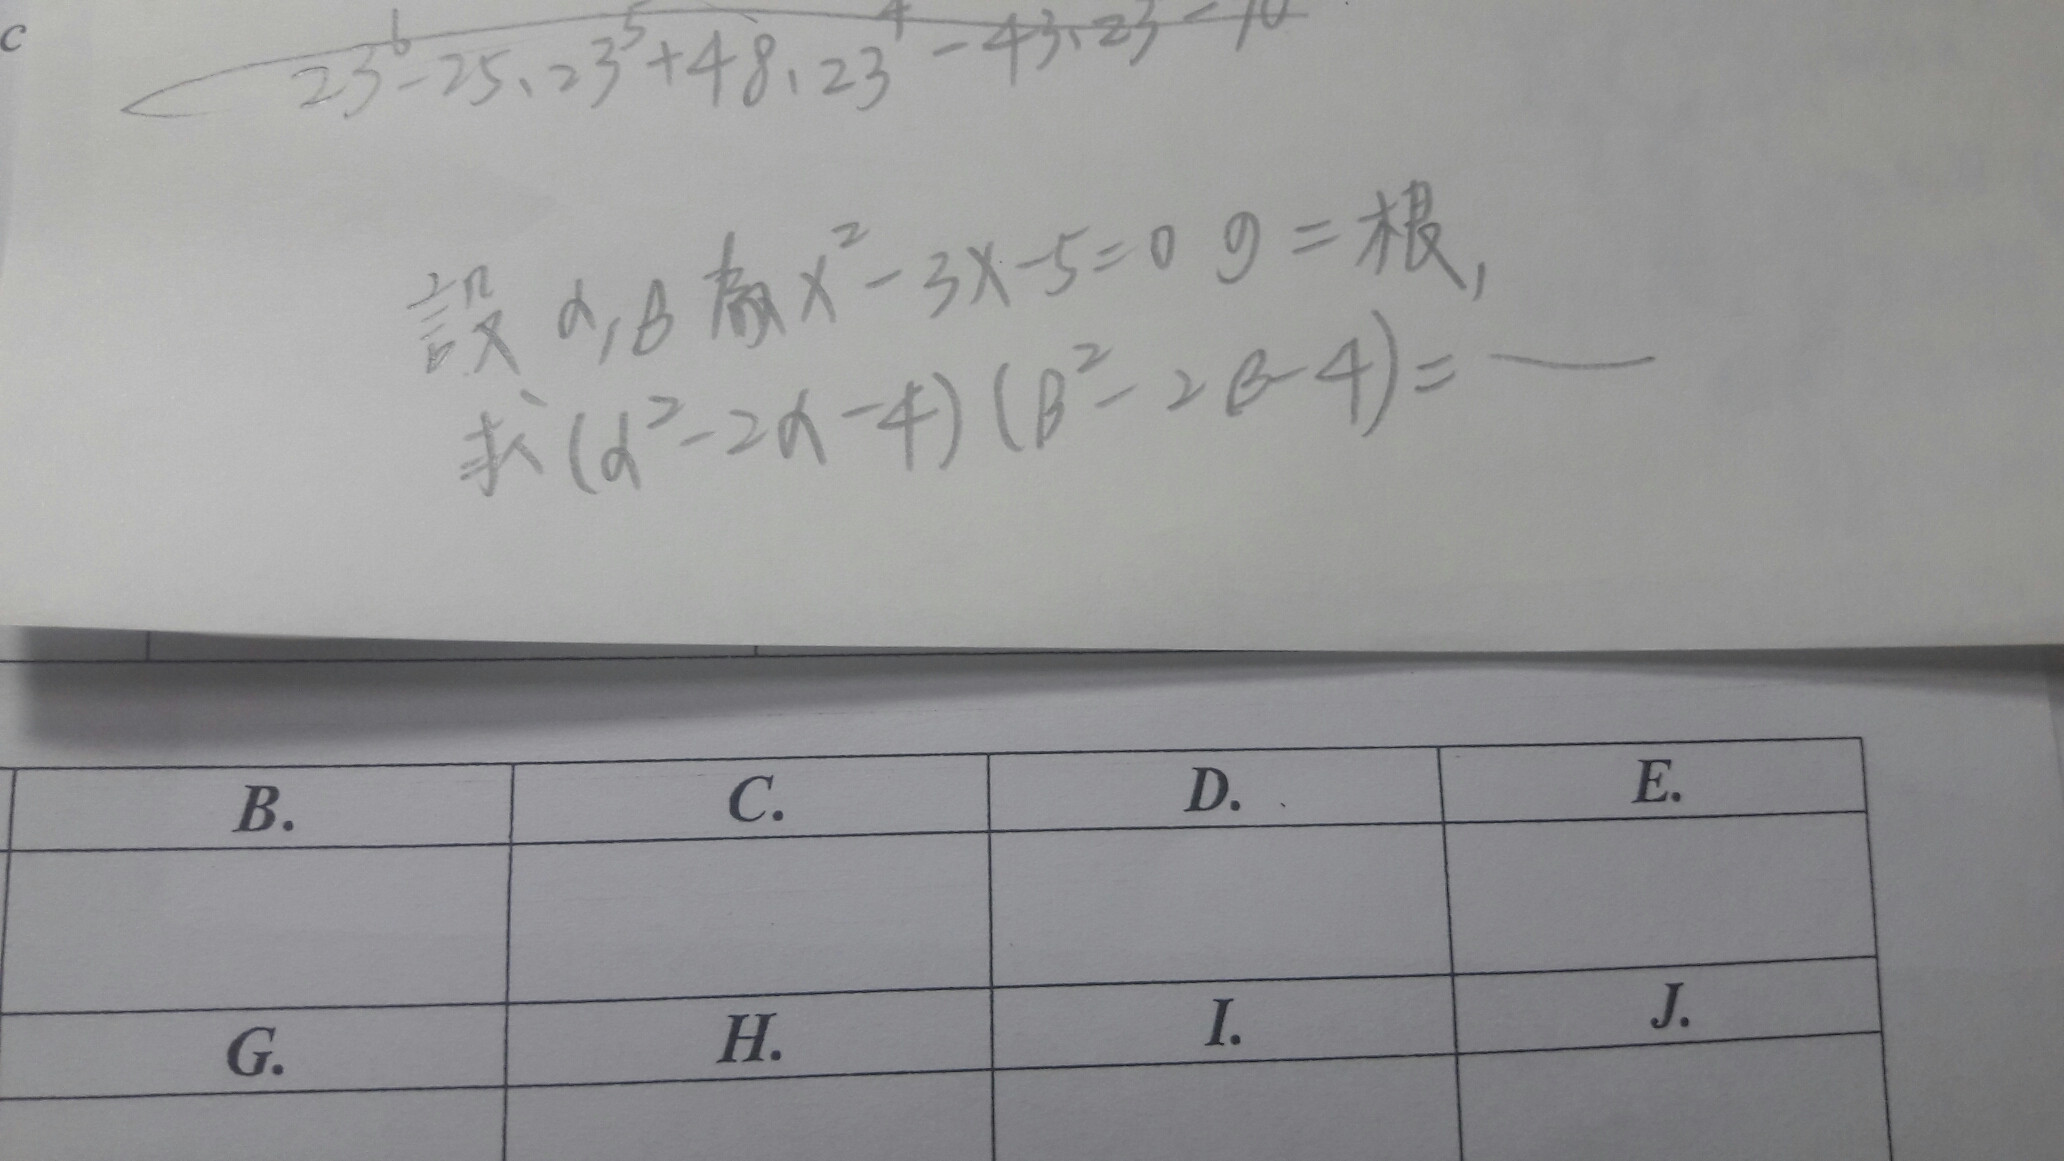 c
23⁶-25、23⁵+48、23⁴-43、23³-10
設 α,β 為x²-3x-5=0 の=根,
求(α²-2α-4)(β²-2β-4)=
B. C. D. E.
G. H. I. J.